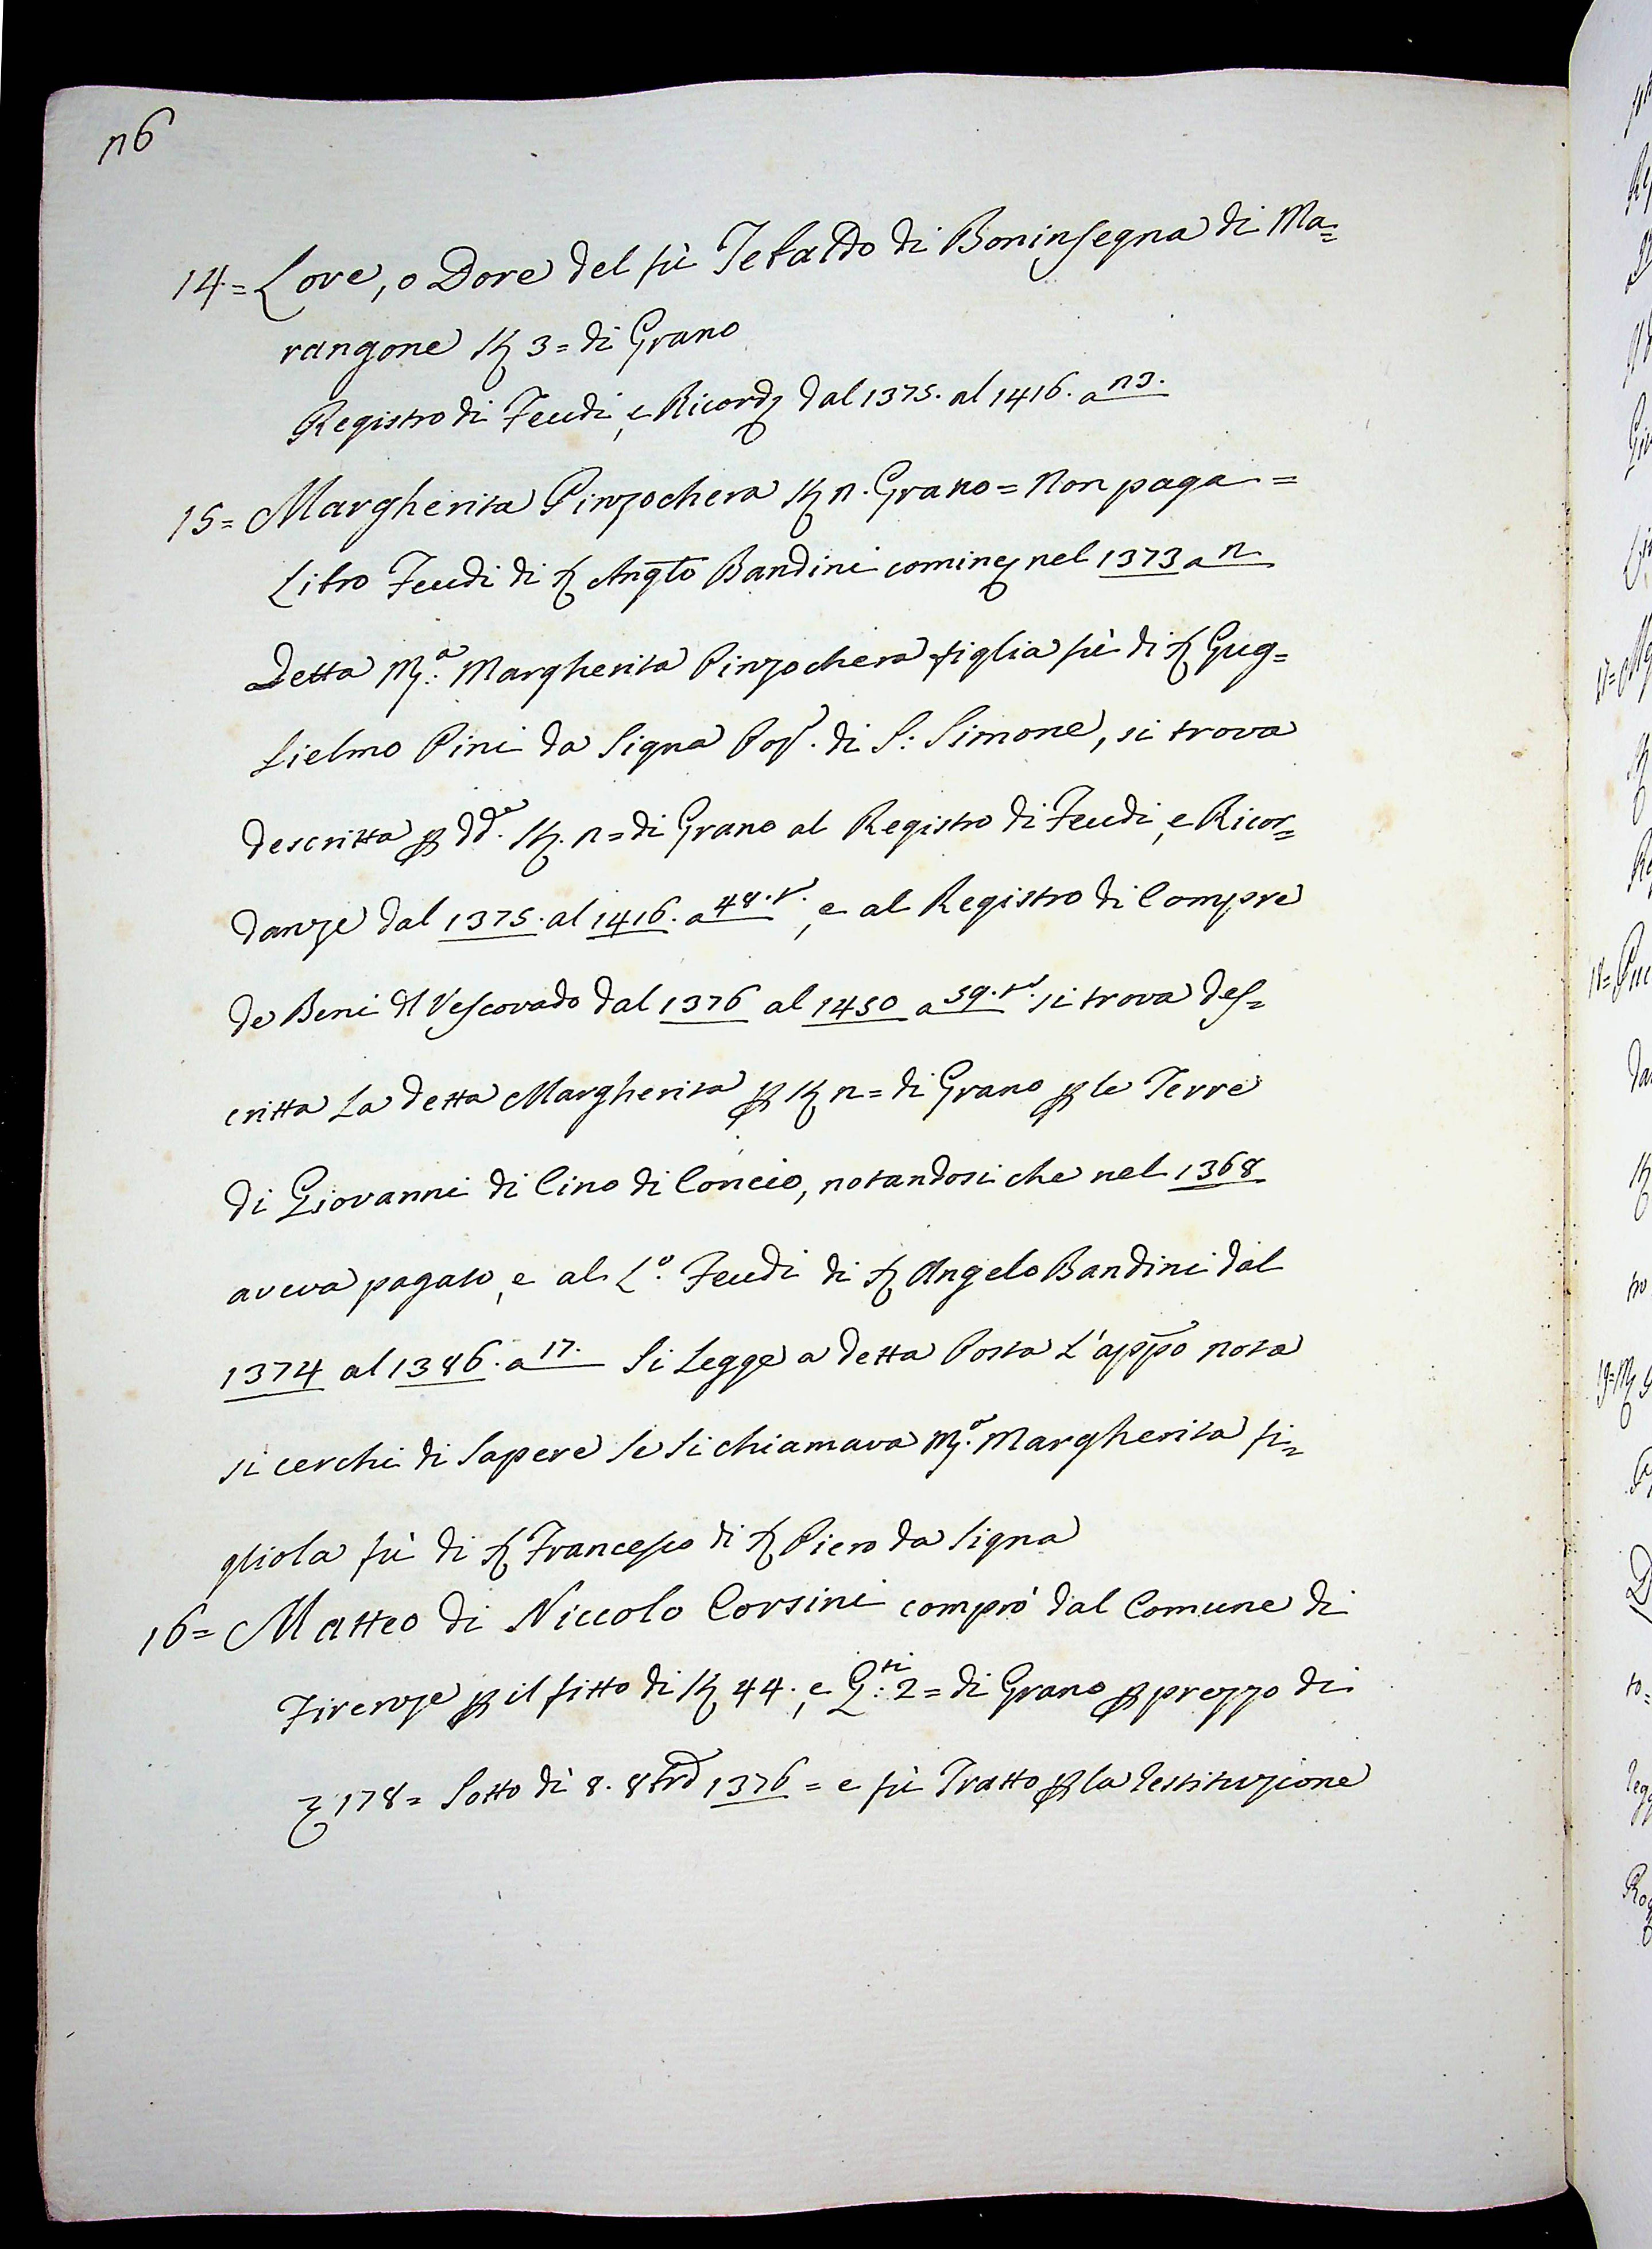 116
14.= Lore, o Dore del fù Tebaldo di Boninsegna di Ma=
rangone St. 3= di Grano
Registro di Feudi, e Ricord. dal 1375. al 1416. a 113.
15= Margherita Pinzochera St. 11. Grano = Non paga =
Libro Feudi di S. Angto Bandini cominc. nel 1373 a 11
Detta M.a Margherita Pinzochera figlia fù di S. Gug=
lielmo Pini da Signa Pop. di S: Simone, si trova
descritta p dd.e St. 11= di Grano al Registro di Feudi, e Ricor=
danze dal 1375. al 1416. a 48. t., e al Registro di Compre
de Beni dl Vescovado dal 1376 al 1450 a 59. t. si trova des=
critta la detta Margherita p St 11= di Grano p le Terre
di Giovanni di Cino di Concio, notandosi che nel 1368
aveva pagato, e al L.o Feudi di S. Angelo Bandini dal
1374 al 1386. a 17. Si legge a detta Posta l'appo nota
si cerchi di sapere se si chiamava M.a Margherita fi=
gliola fù di S. Francesco di S. Piero da Signa
16= Matteo di Niccolo Corsini comprò dal Comune di
Firenze p il fitto di St. 44., e Q.ti: 2= di Grano p prezzo di
178= Sotto dì 8. 8bre 1376 = e fù Tratto p la restituzione